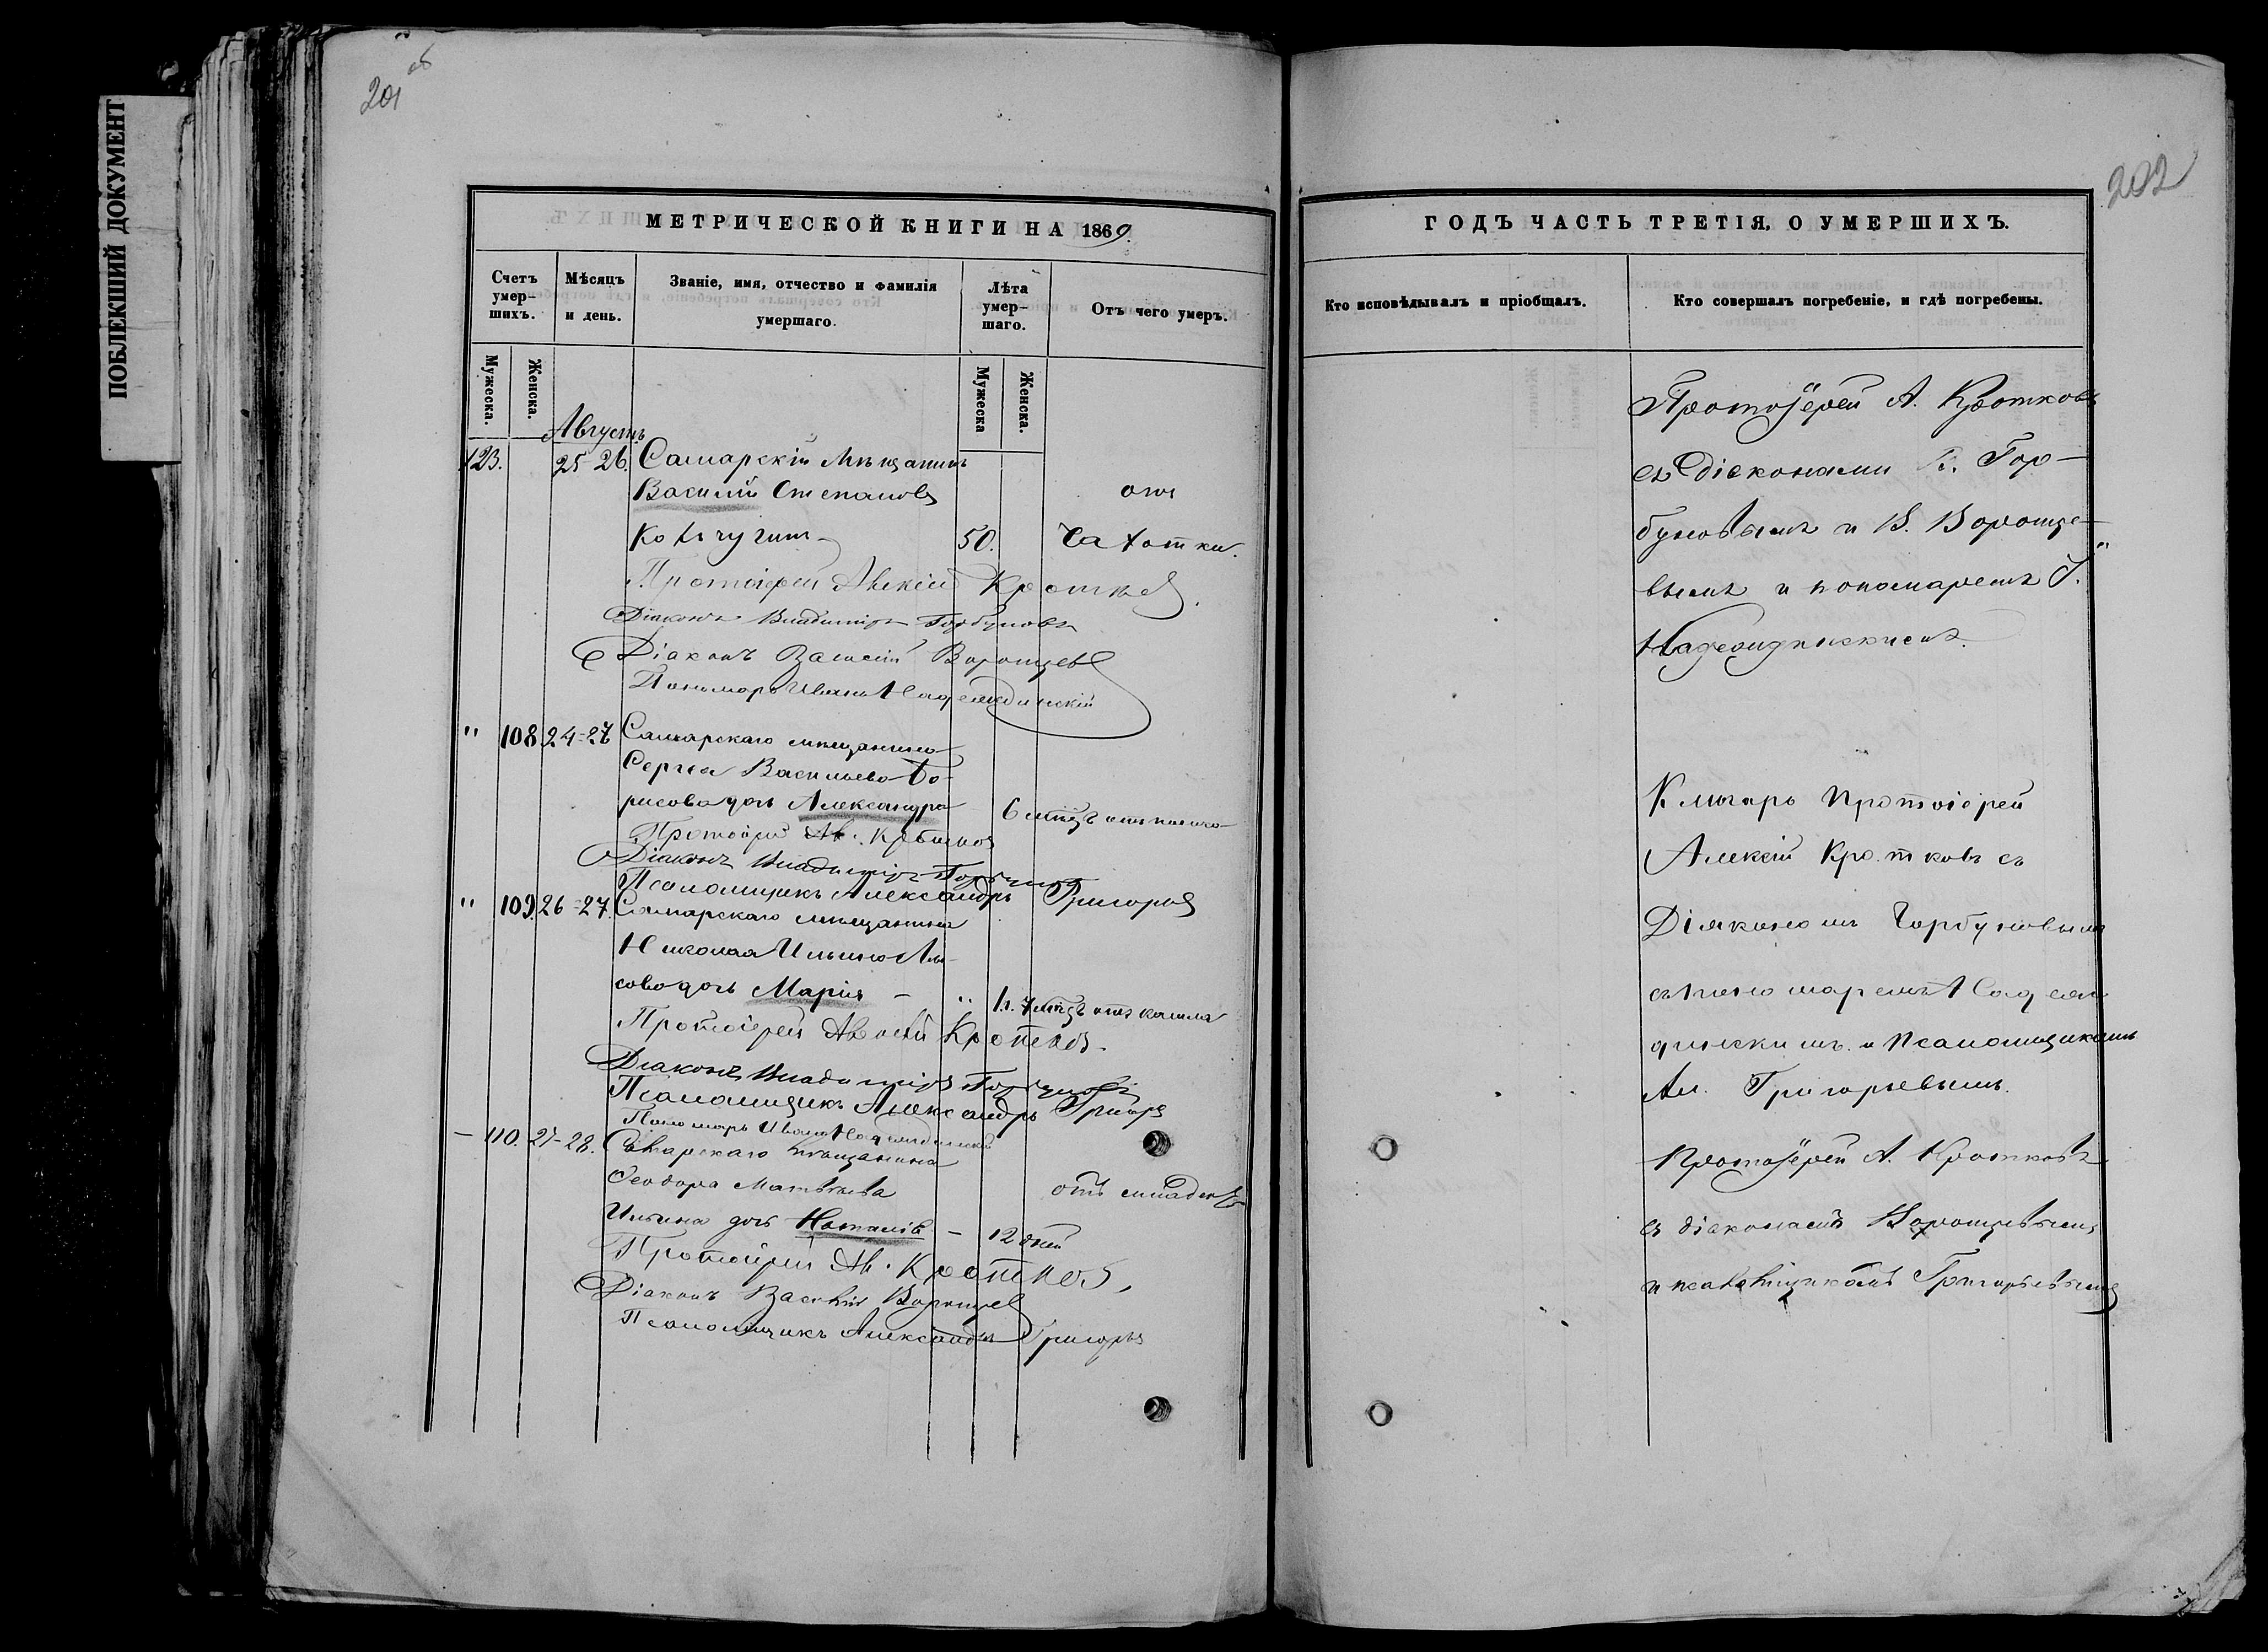 ПОБЛЕКШИЙ ДОКУМЕНТ
201 об
МЕТРИЧЕСКОЙ КНИГИ НА 1869.
Счетъ умер-шихъ.
Мѣсяцъ и день.
Званіе, имя, отчество и фамилія умершаго.
Лѣта умер-шаго.
Отъ чего умеръ.
Мужеска.
Женска.
Мужеска
Женска.
Августъ
123. 25-26. Самарскій Мѣщанинъ
Василій Степановъ отъ
Кольчугинъ 50. Чахотки.
Протоіерей Алексій Кротковъ.
Діаконъ Владиміръ Горбуновъ
Діаконъ Василій Воронцевъ
Пономарь Иванъ Надеждинскій
" 108 24-27 Самарскаго мѣщанина
Сергея Васильева Бо-
рисова дочь Александра 6 мѣцъ отъ поноса
Протоіерей Ал. Кротковъ
Діаконъ Владиміръ Горбуновъ
Псаломщикъ Александръ Григорьев
" 109 26-27. Самарскаго мѣщанина
Николая Ильина
дочь Марія - " 1.г. 7 мѣцъ отъ кашля
Протоіерей Алексій Кротковъ.
Діаконъ Владиміръ Горбуновъ
Псаломщикъ Александръ Григорьев
Пономарь Иванъ Надеждинскій
- 110. 27-28. Самарскаго мѣщанина
Ѳеодора Матвѣева отъ младенч
Ильина дочь Наталія - 12 дней
Протоіерей Ал. Кротковъ,
Діаконъ Василій Воронцев
Псаломщикъ Александръ Григорьев
202
ГОДЪ ЧАСТЬ ТРЕТІЯ, О УМЕРШИХЪ.
Кто исповѣдывалъ и пріобщалъ.
Кто совершалъ погребеніе, и гдѣ погребены.
Протоіерей А. Кротковъ
съ діаконами В. Гор-
буновымъ и В. Воронце-
вымъ и пономаремъ І.
Надеждинскимъ.
Ключарь Протоіерей
Алексій Кротковъ съ
Діакономъ Горбуновымъ
съ пономаремъ Надеж
динскимъ и Псаломщикомъ
Ал. Григорьевымъ.
Протоіерей А. Кротковъ
съ діакономъ Воронцевымъ
и псаломщикомъ Григорьевымъ